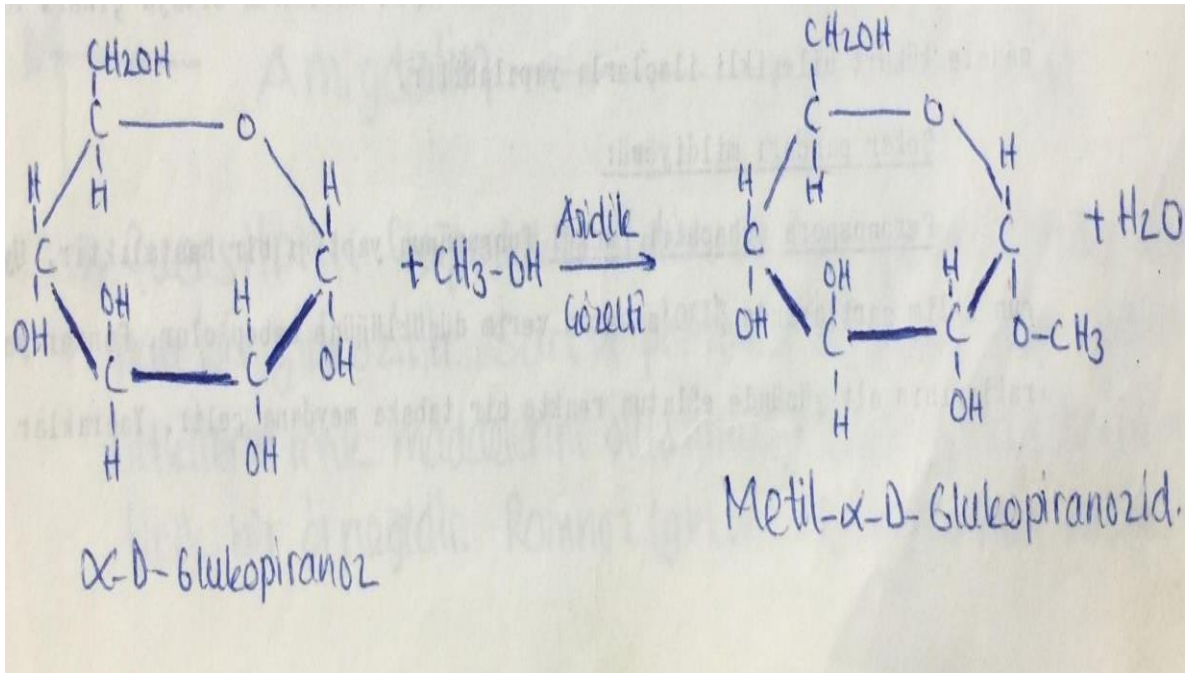 CH2OH
C
O
H
H
H
C
C
OH
H
OH
OH
C
C
H
OH
α-D-Glukopiranoz
+ CH3-OH
Asidik
Gözelti
CH2OH
C
O
H
H
H
C
C
OH
H
OH
O-CH3
C
C
OH
H
Metil-α-D-Glukopiranozid.
+ H2O